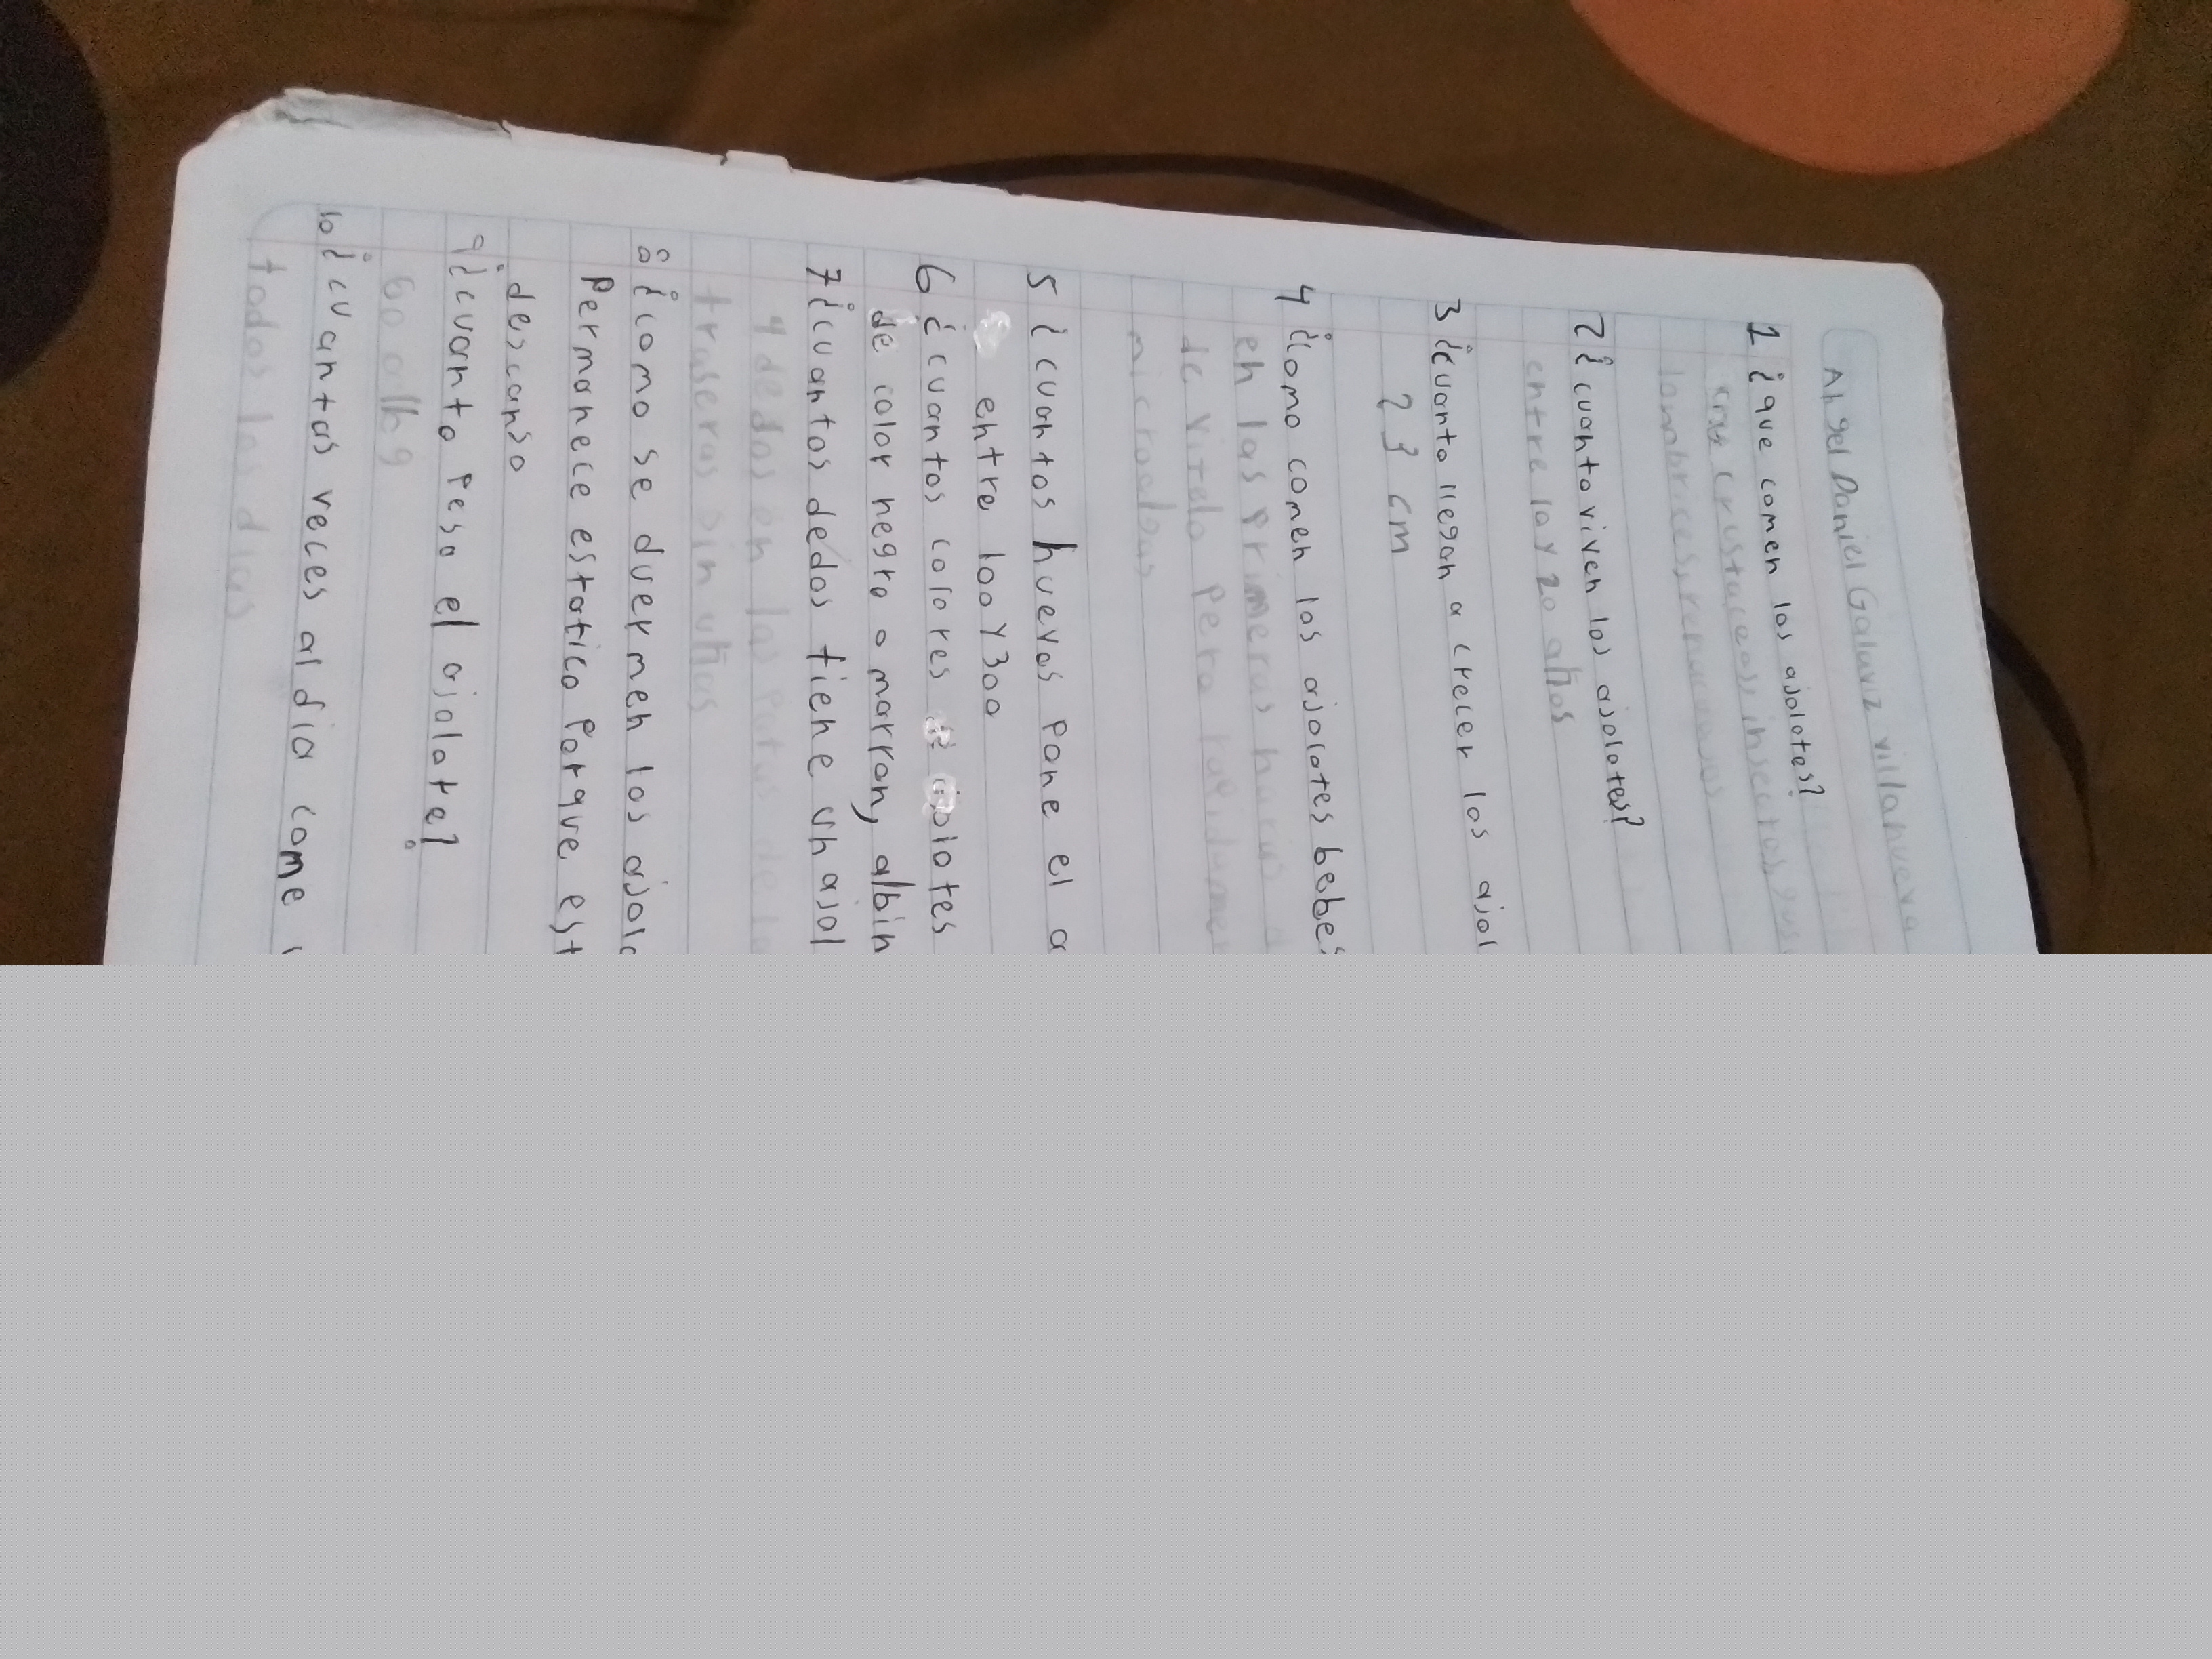 Angel Daniel Galaviz villanueva
1 ¿que comen los ajolotes?
crustaceos, insectos,
lombrices, renacuajos
2 ¿cuanto viven los ajolotes?
entre 10 y 20 años
3 ¿cuanto llegan a crecer los ajol
23 cm
4 ¿como comen los ajolotes bebes
en las primeras horas d
de vitelo pero rapidamen
microalgas
5 ¿cuantos huevos pone el a
entre 100 y 300
6 ¿cuantos colores
de color negro o marron, albin
7 ¿cuantos dedos tiene un ajol
4 dedos en las patas de la
traseras sin uñas
8 ¿como se duermen los ajolo
Permanece estatico porque est
descanso
9 ¿cuanto pesa el ajolote?
60
10 ¿cuantas veces al dia come
todos los dias